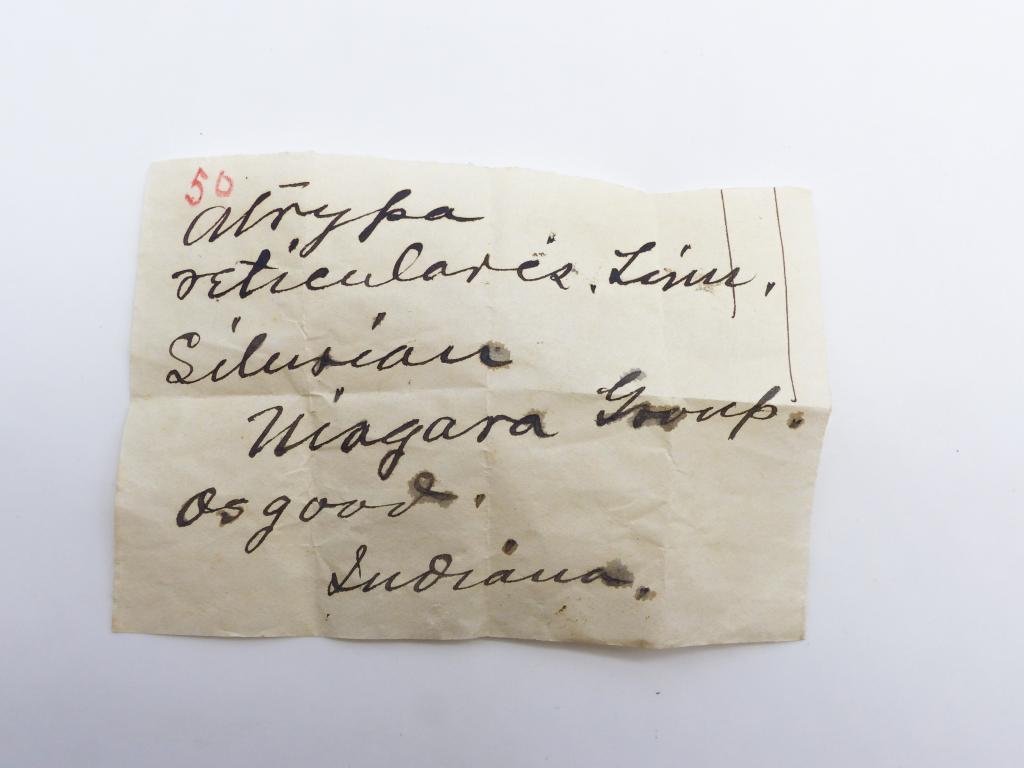 50
Atrypa
reticularis. Linn.
Silurian
Niagara Group.
Osgood.
Indiana.